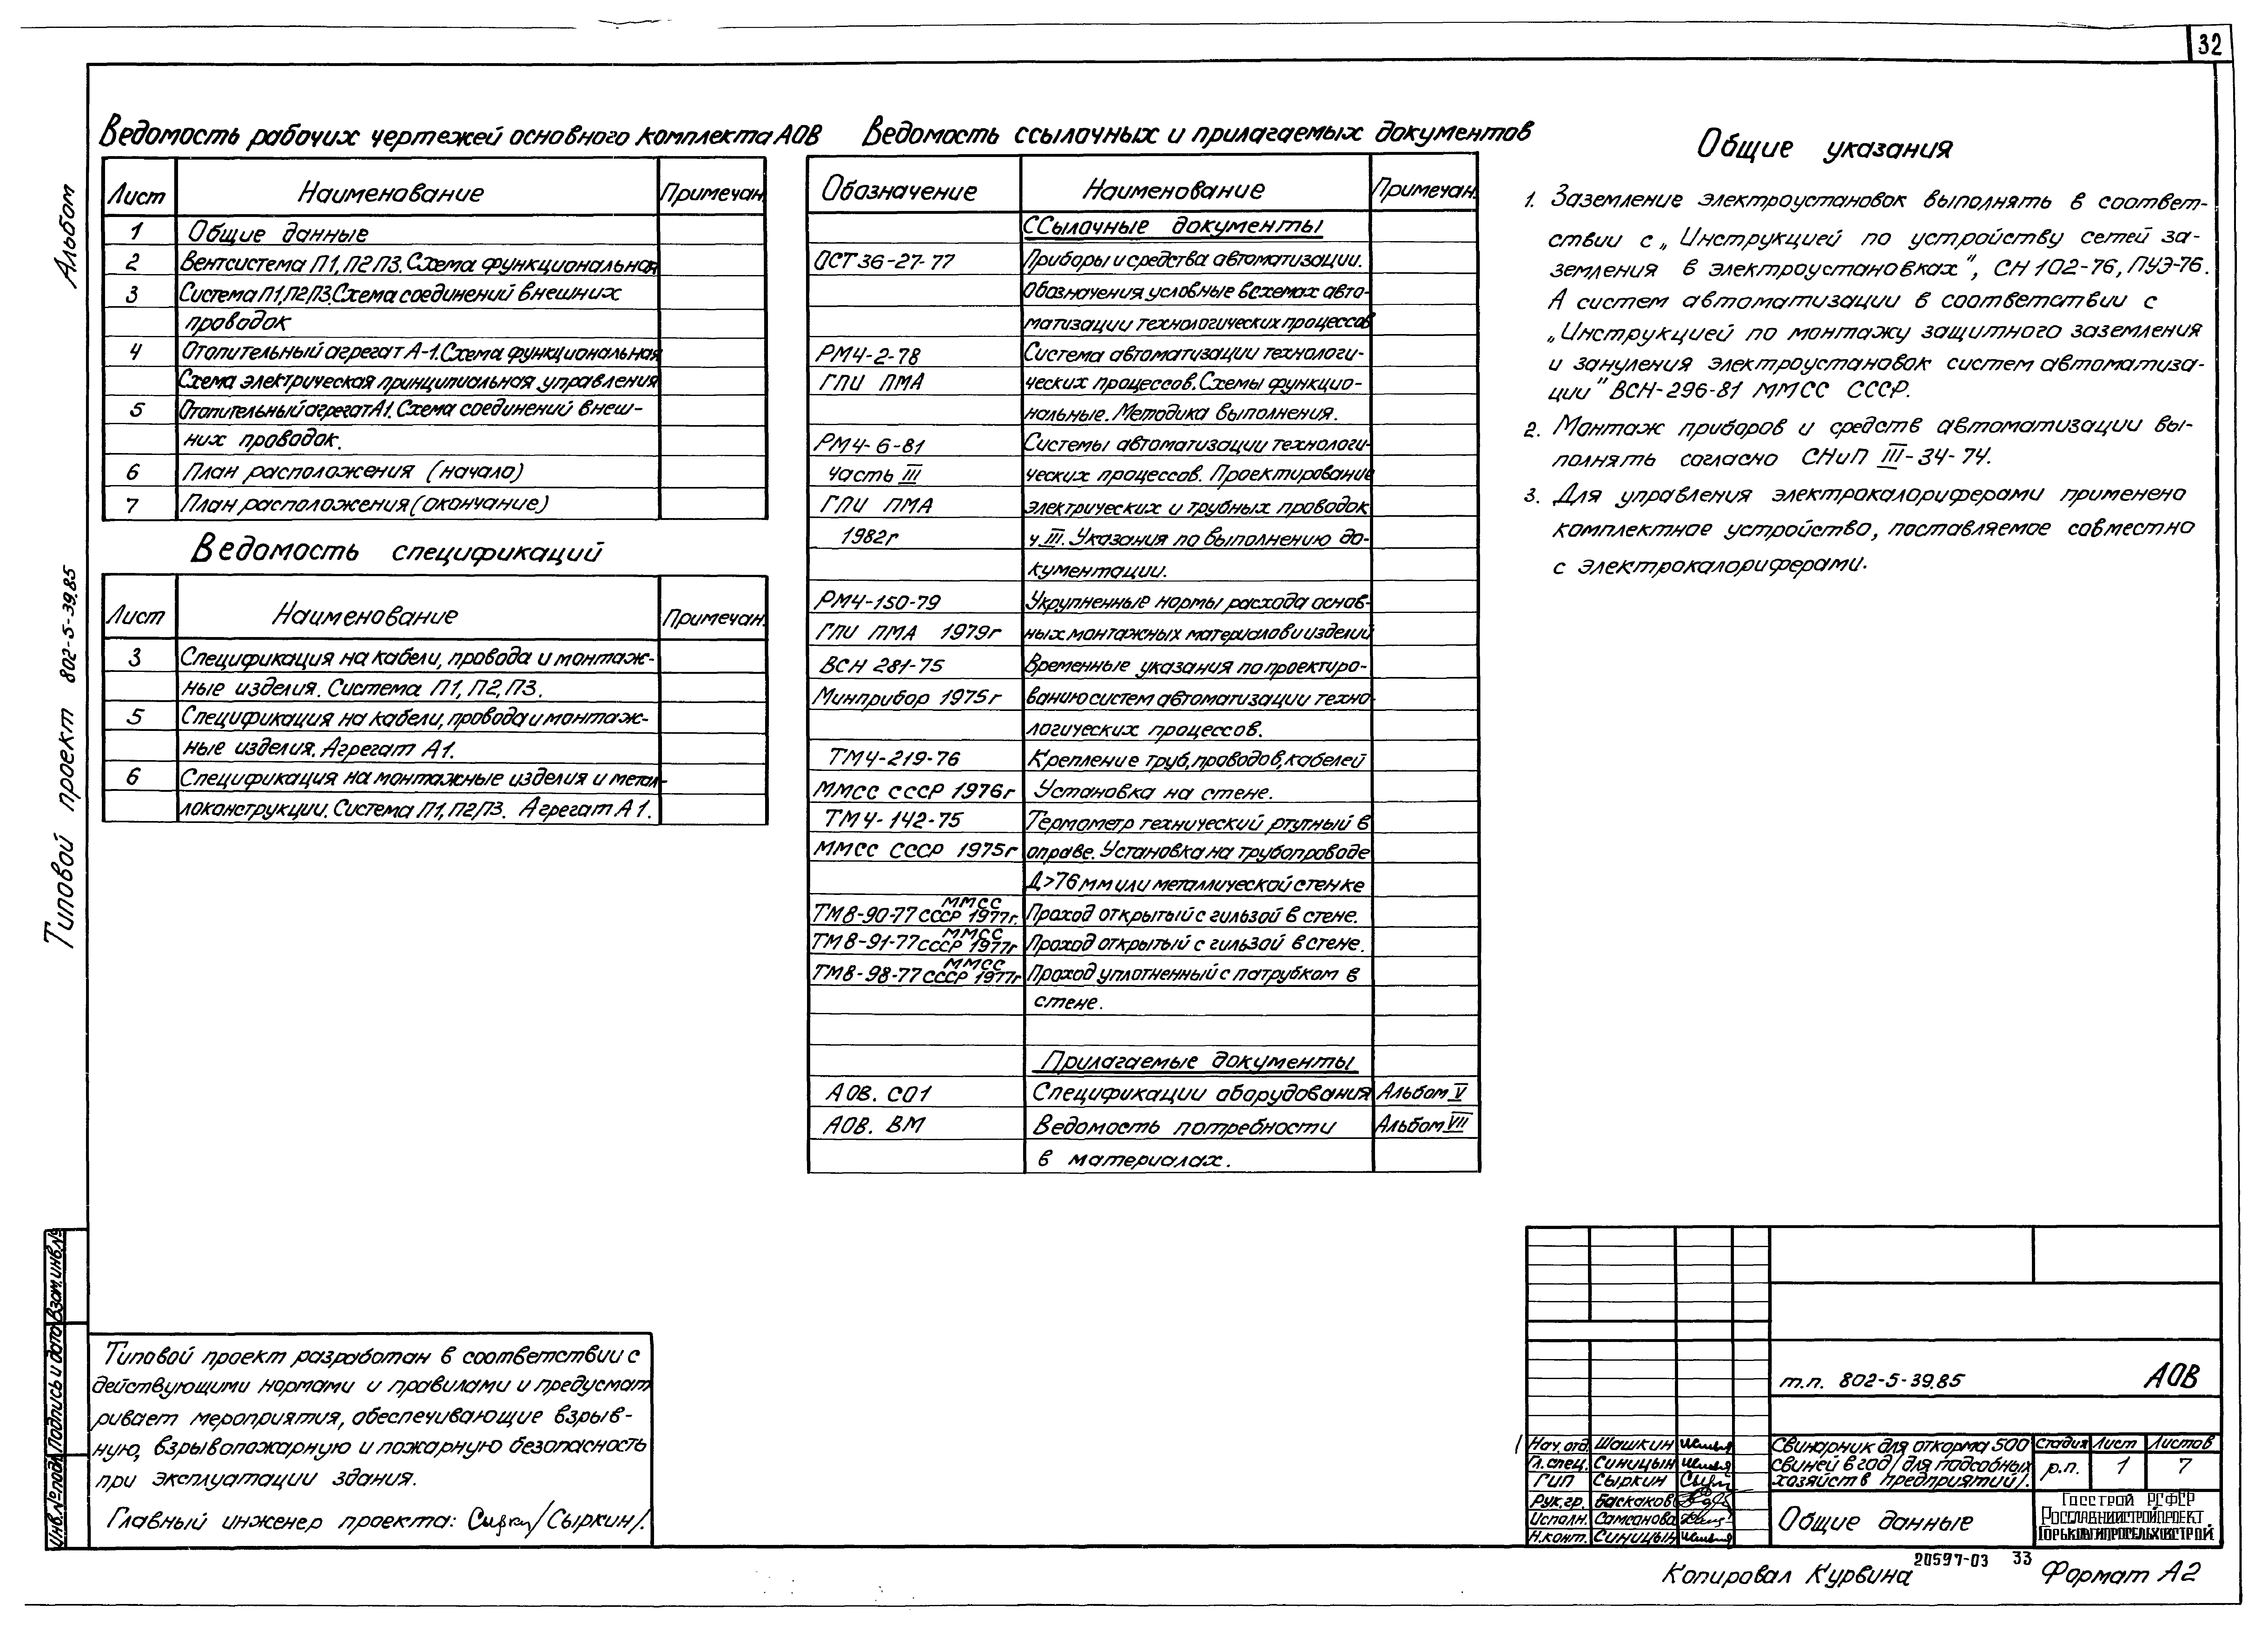 32
Альбом
Типовой проект 802-5-39.85
Ведомость рабочих чертежей основного комплекта АОВ
Лист Наименование Примечан.
1 Общие данные
2 Вентсистема П1, П2 П3. Схема функциональная
3 Система П1, П2, П3. Схема соединений внешних
проводок
4 Отопительный агрегат А-1. Схема функциональная
Схема электрическая принципиальная управления
5 Отопительный агрегат А1. Схема соединений внеш-
них проводок.
6 План расположения (начало)
7 План расположения (окончание)
Ведомость спецификаций
Лист Наименование Примечан.
3 Спецификация на кабели, провода и монтаж-
ные изделия. Система П1, П2, П3.
5 Спецификация на кабели, провода и монтаж-
ные изделия. Агрегат А1.
6 Спецификация на монтажные изделия и метал-
локонструкции. Система П1, П2, П3. Агрегат А1.
Ведомость ссылочных и прилагаемых документов
Обозначение Наименование Примечан.
ССылочные документы
ОСТ 36-27-77 Приборы и средства автоматизации.
Обозначения условные в схемах авто-
матизации технологических процессов
РМ4-2-78 Система автоматизации технологи-
ГПИ ПМА ческих процессов. Схемы функцио-
нальные. Методика выполнения.
РМ4-6-81 Системы автоматизации технологи-
часть III ческих процессов. Проектирование
ГПИ ПМА электрических и трубных проводок
1982г ч. III. Указания по выполнению до-
кументации.
РМ4-150-79 Укрупненные нормы расхода основ-
ГПИ ПМА 1979г ных монтажных материалов и изделий
ВСН 281-75 Временные указания по проектиро-
Минприбор 1975г ванию систем автоматизации техно-
логических процессов.
ТМ4-219-76 Крепление труб, проводов, кабелей
ММСС СССР 1976г Установка на стене.
ТМ4-142-75 Термометр технический ртутный в
ММСС СССР 1975г оправе. Установка на трубопроводе
Д>76 мм или металлической стенке
ТМ8-90-77 ММСС СССР 1977г. Проход открытый с гильзой в стене.
ТМ8-91-77 ММСС СССР 1977г Проход открытый с гильзой в стене.
ТМ8-98-77 ММСС СССР 1977г Проход уплотненный с патрубком в
стене.
Прилагаемые документы
АОВ. СО1 Спецификации оборудования Альбом V
АОВ. ВМ Ведомость потребности Альбом VII
в материалах.
Общие указания
1. Заземление электроустановок выполнять в соответ-
ствии с „Инструкцией по устройству сетей за-
земления в электроустановках", СН 102-76, ПУЭ-76.
А систем автоматизации в соответствии с
„Инструкцией по монтажу защитного заземления
и зануления электроустановок систем автоматиза-
ции" ВСН-296-81 ММСС СССР.
2. Монтаж приборов и средств автоматизации вы-
полнять согласно СНиП III-34-74.
3. Для управления электрокалориферами применено
комплектное устройство, поставляемое совместно
с электрокалориферами.
Инв.№подл. Подпись и дата Взам.инв.№
Типовой проект разработан в соответствии с
действующими нормами и правилами и предусмат
ривает мероприятия, обеспечивающие взрыв-
ную, взрывопожарную и пожарную безопасность
при эксплуатации здания.
Главный инженер проекта: /Сыркин/.
т.п. 802-5-39.85 АОВ
Нач. отд. Шашкин
Гл. спец. Синицын
ГИП Сыркин
Рук. гр. Баскаков
Исполн. Самсонова
Н.конт. Синицын
Свинарник для откорма 500
свиней в год /для подсобных
хозяйств предприятий/.
Стадия Лист Листов
р.п. 1 7
Общие данные
Госстрой РСФСР
Росглавниистройпроект
Горьковгипросельхозстрой
20597-03 33
Копировал Курвина Формат А2